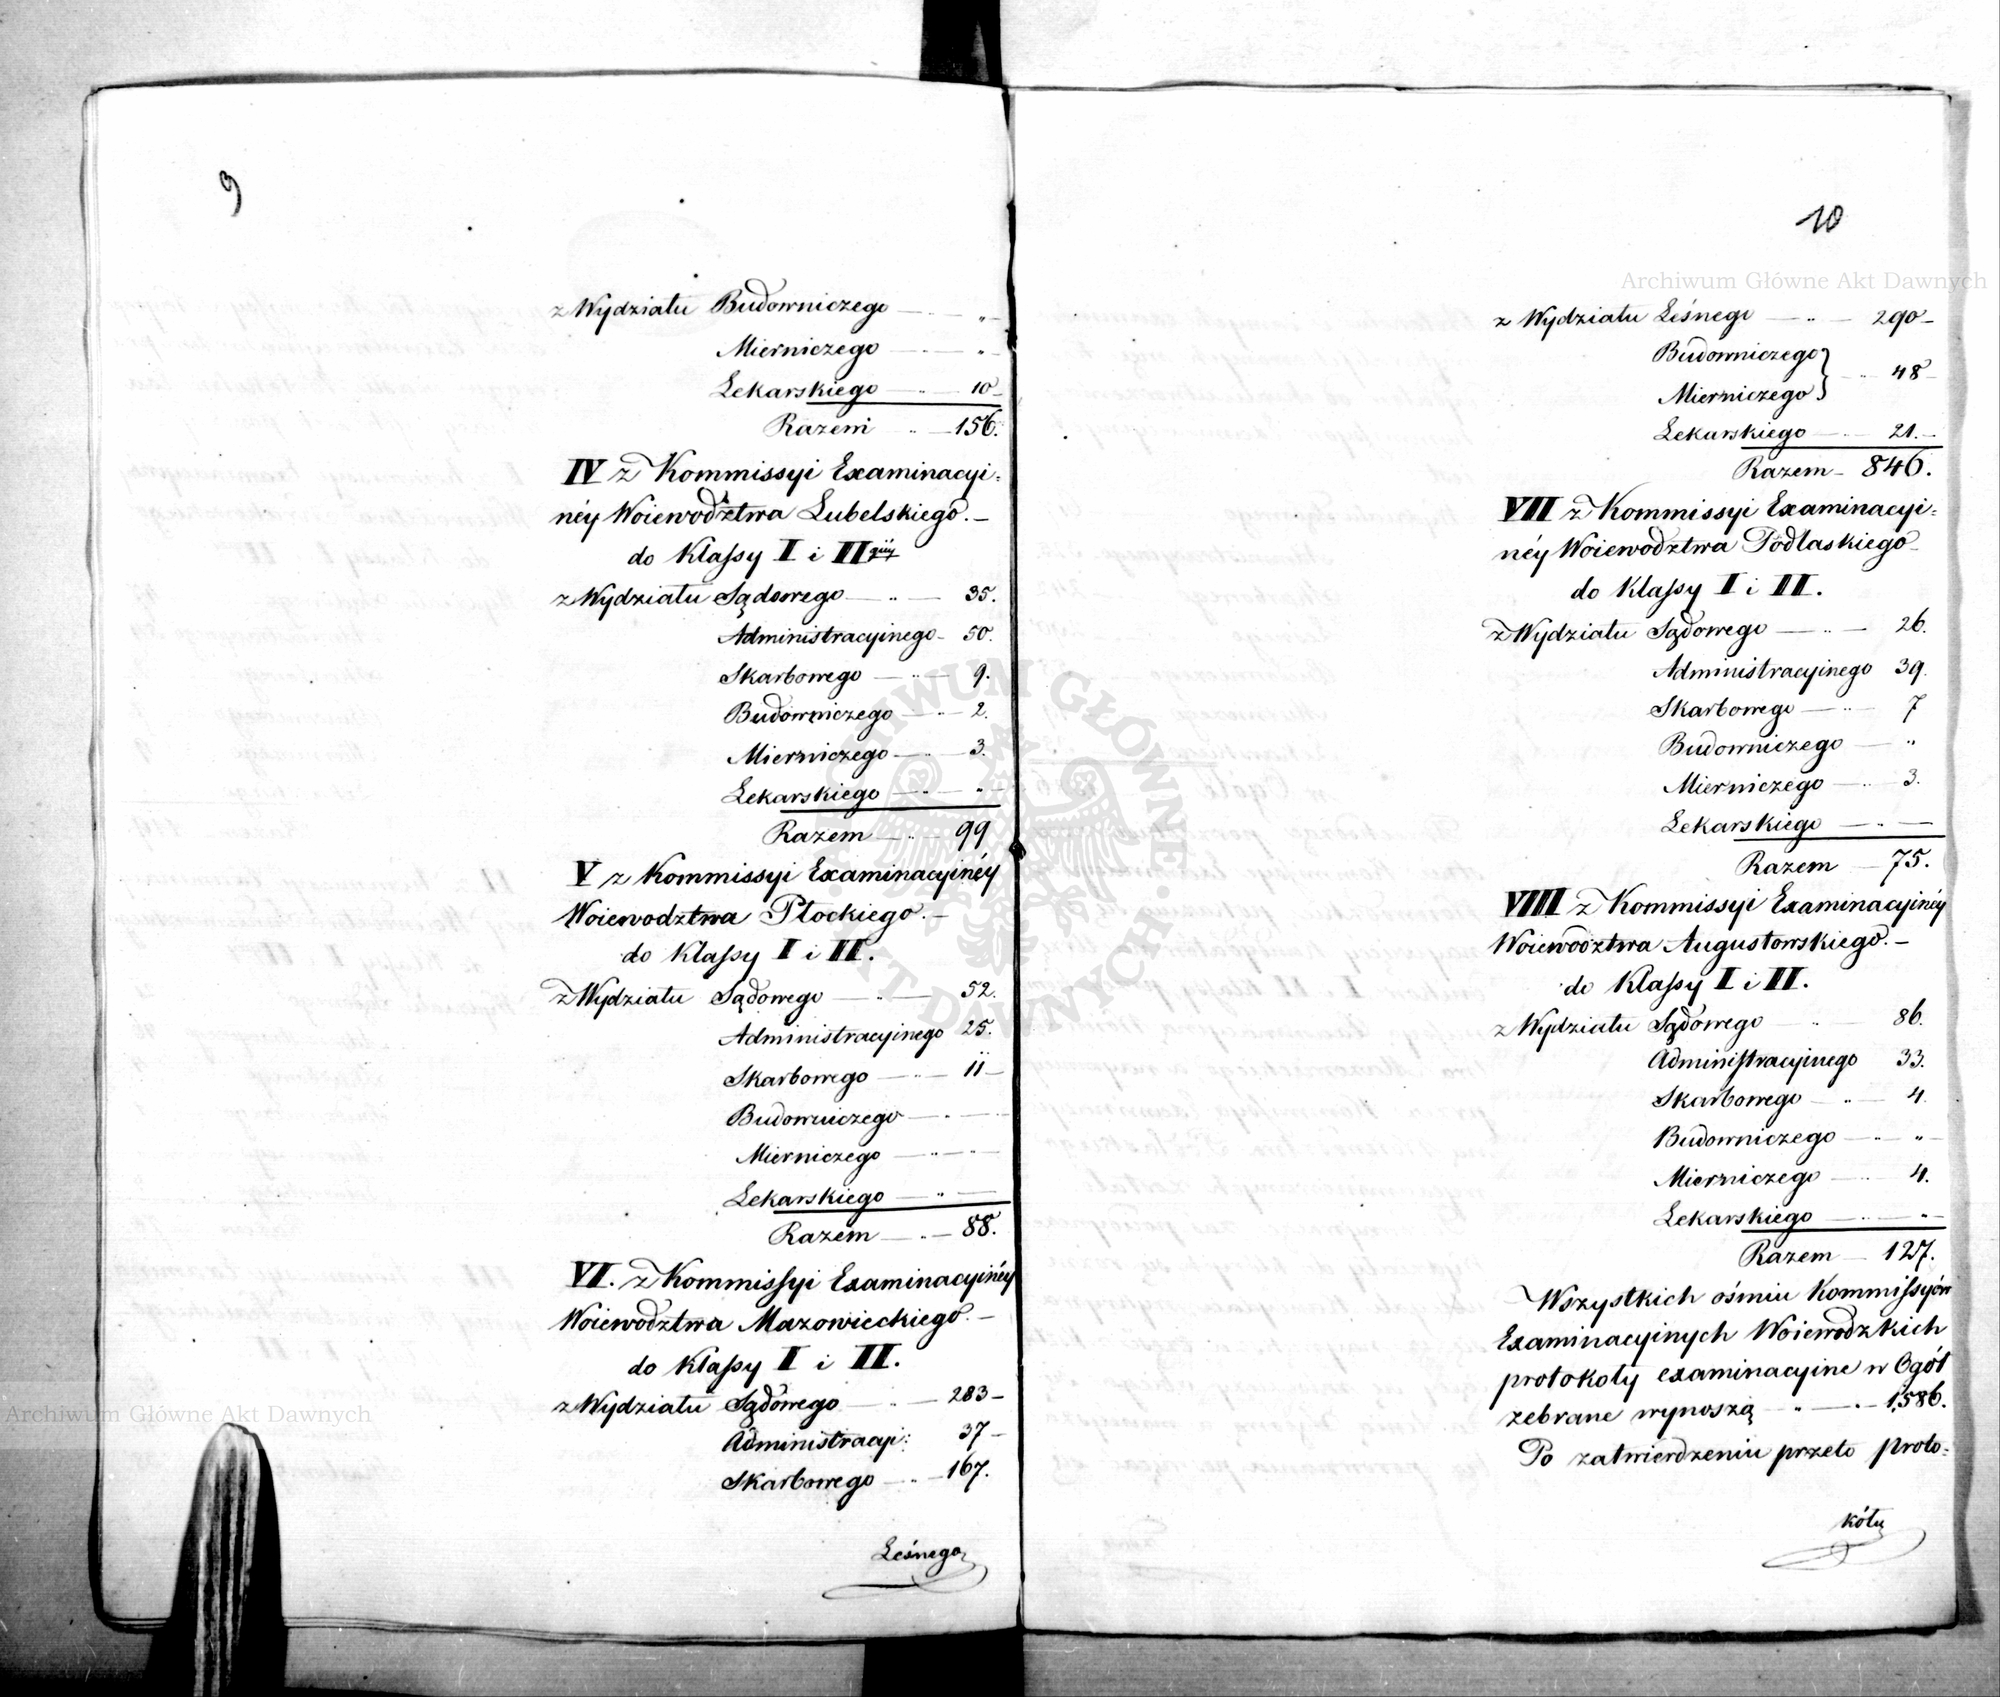 9
z Wydziału Budowniczego — „ —
Mierniczego — „ —
Lekarskiego — „ — 10 —
Razem „ — 156.
IV z Kommissyi Examinacyi=
néy Woiewodztwa Lubelskiego. —
do Klassy I i II giiy
z Wydziału Sądowego — „ — 35.
Administracyinego — 50.
Skarbowego — „ — 9.
Budowniczego — „ — 2.
Mierniczego — „ — 3.
Lekarskiego — „ — „ —
Razem — „ — 99
V z Kommissyi Examinacyinéy
Woiewodztwa Płockiego. —
do Klassy I i II.
z Wydziału Sądowego — „ — 52.
Administracyinego 25.
Skarbowego — „ — 11 —
Budowniczego — „ —
Mierniczego — „ — „ —
Lekarskiego — „ —
Razem — „ — 88.
VI. z Kommissyi Examinacyinéy
Woiewodztwa Mazowieckiego. —
do Klassy I i II.
z Wydziału Sądowego — „ — 283 —
Administracyi: 37 —
Skarbowego — „ — 167.
Leśnego
10
z Wydziału Leśnego — „ — 290 —
Budowniczego } — „ — 48 —
Mierniczego
Lekarskiego — „ — 21. —
Razem — 846.
VII z Kommissyi Examinacyi=
néy Woiewodztwa Podlaskiego
do Klassy I i II.
z Wydziału Sądowego — „ — 26.
Administracyinego 39.
Skarbowego — „ — 7
Budowniczego — „
Mierniczego — „ — 3.
Lekarskiego — „ —
Razem — 75.
VIII z Kommissyi Examinacyinéy
Woiewodztwa Augustowskiego. —
do Klassy I i II.
z Wydziału Sądowego „ — 86.
Administracyinego 33.
Skarbowego — „ — 4.
Budowniczego — „ — „ —
Mierniczego — „ — 4.
Lekarskiego — „ — „ —
Razem — 127.
Wszystkich ośmiu Kommissyów
Examinacyinych Woiewodzkich
protokoły examinacyine w Ogół
zebrane wynoszą — „ — „ — 1,586.
Po zatwierdzeniu przeto proto=
kółu
Archiwum Główne Akt Dawnych
Archiwum Główne Akt Dawnych
ARCHIWUM GŁÓWNE · AKT DAWNYCH ·